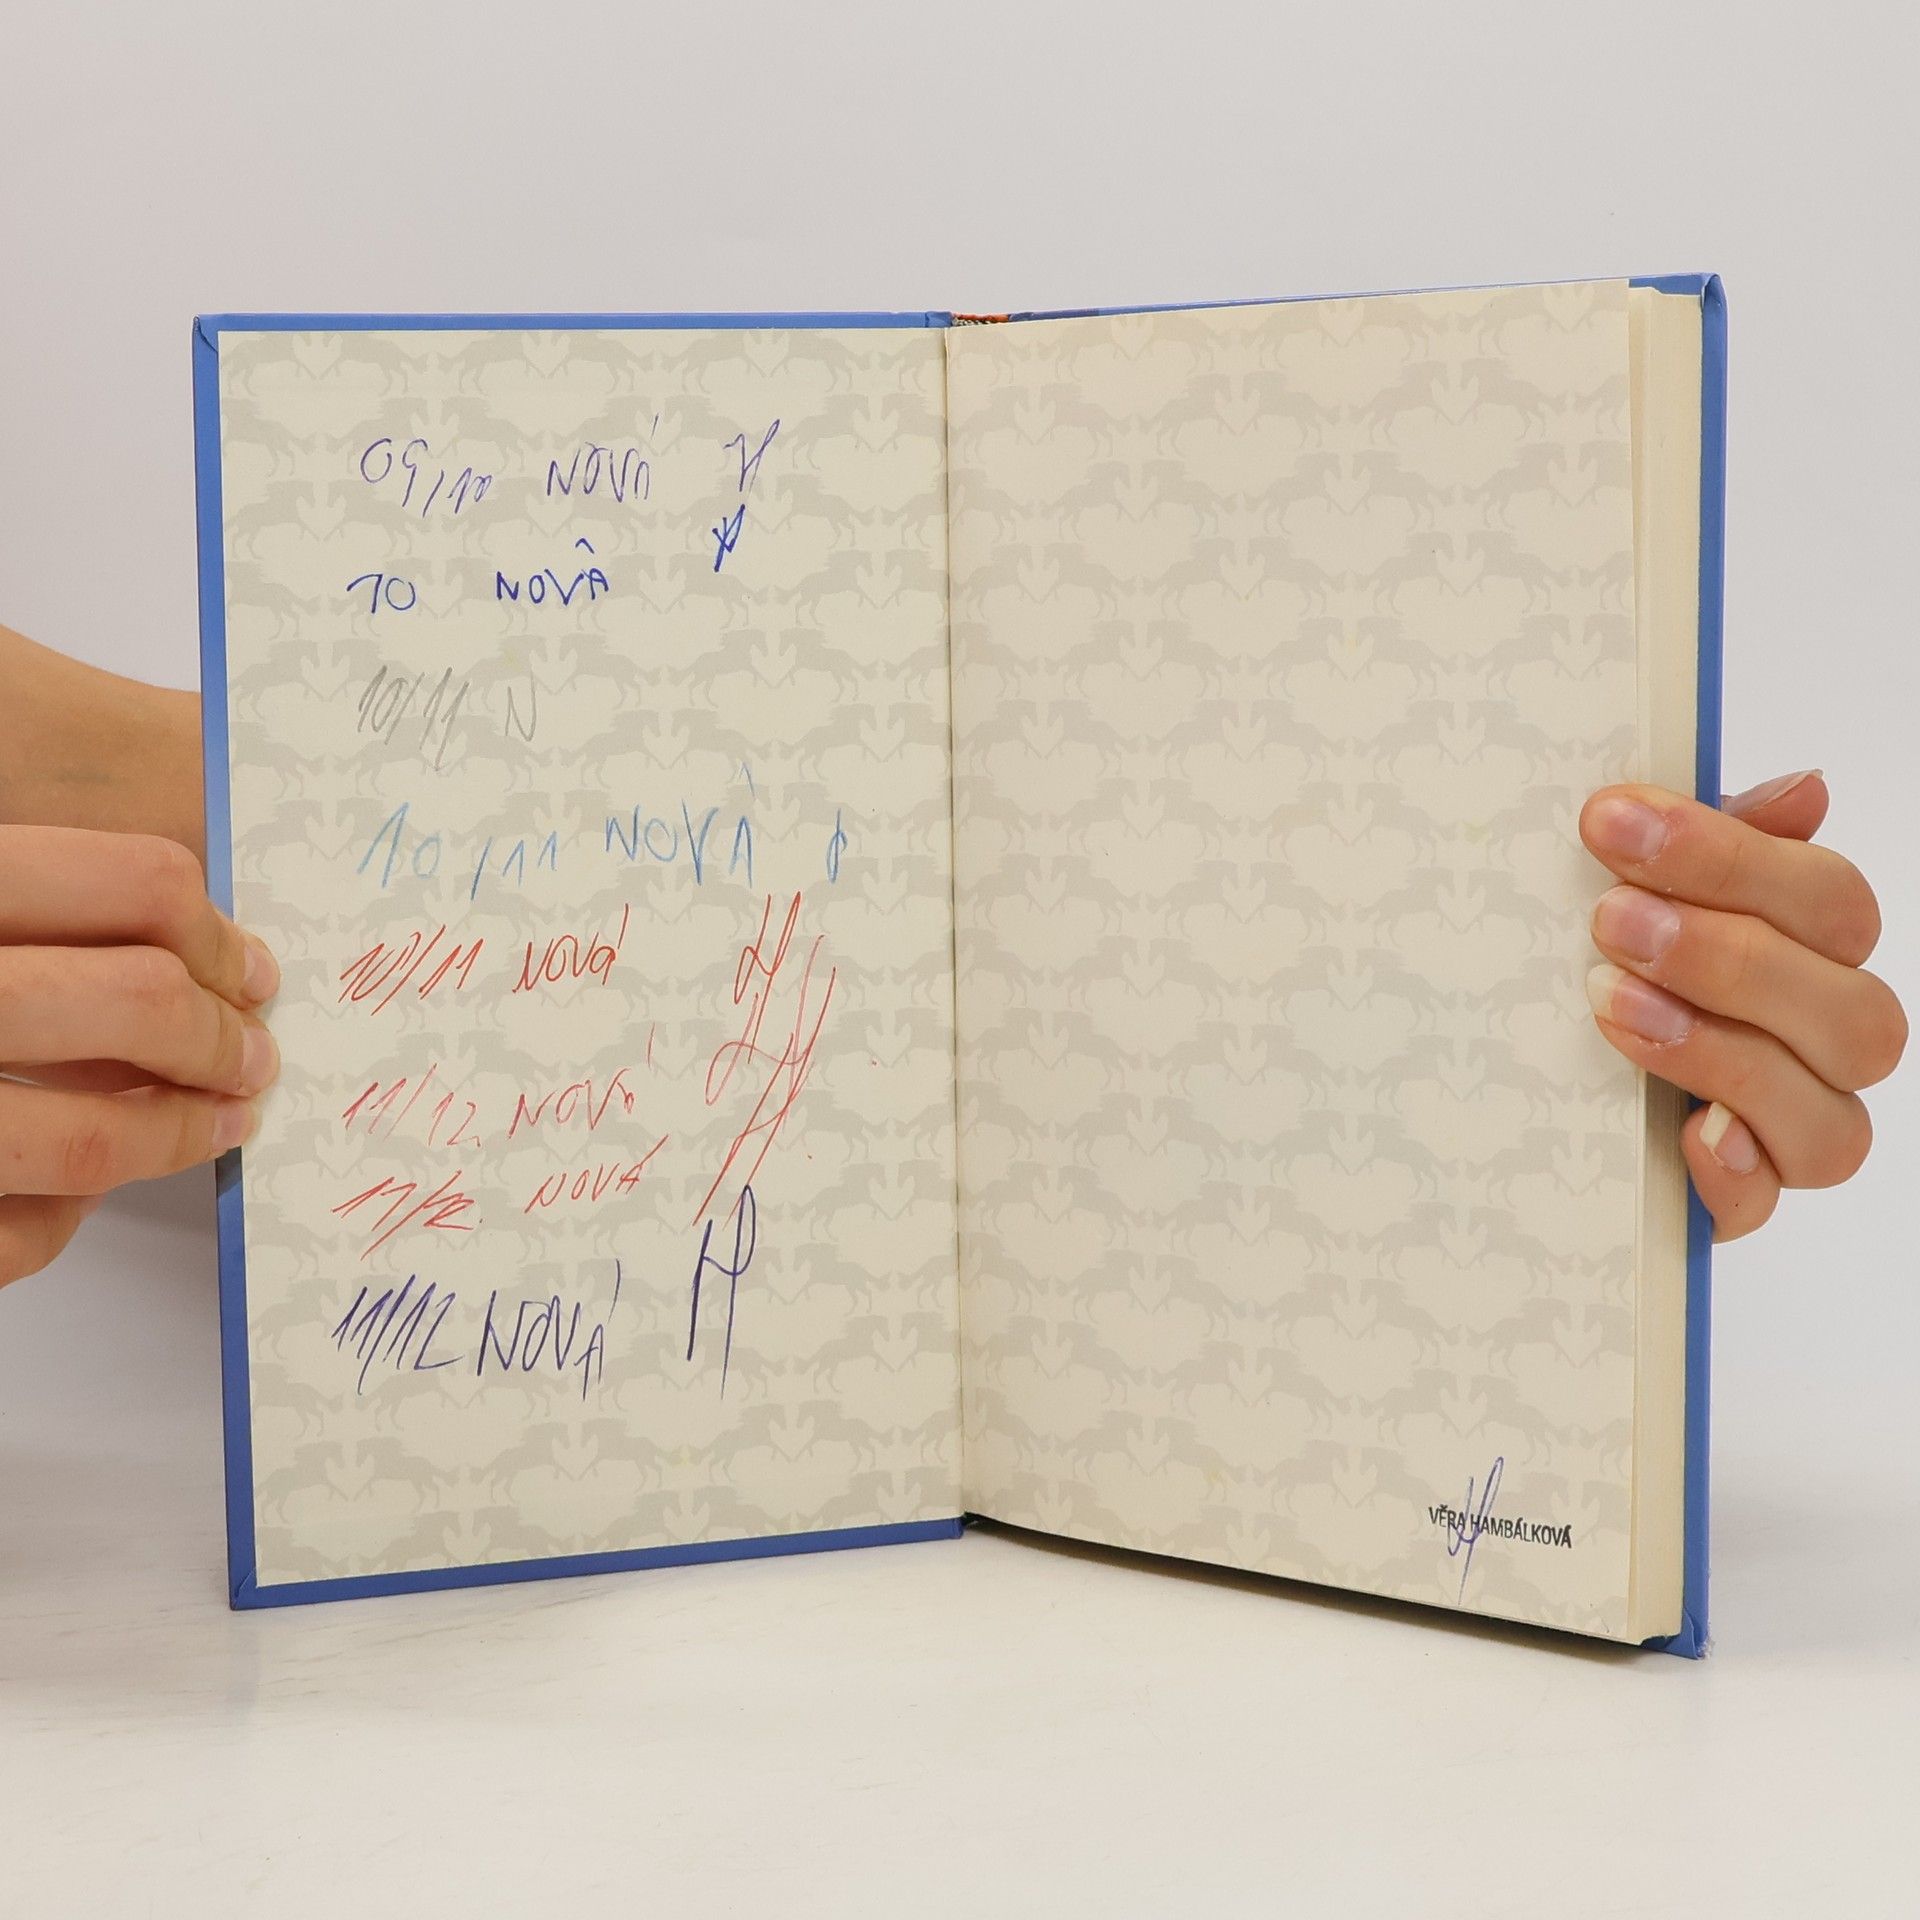 09/10 NOVÁ
10 NOVÂ
10/11 N
10/11 NOVÂ
10/11 NOVÁ
11/12 NOVÁ
11/12 NOVÁ
11/12 NOVÁ
VĚRA HAMBÁLKOVÁ